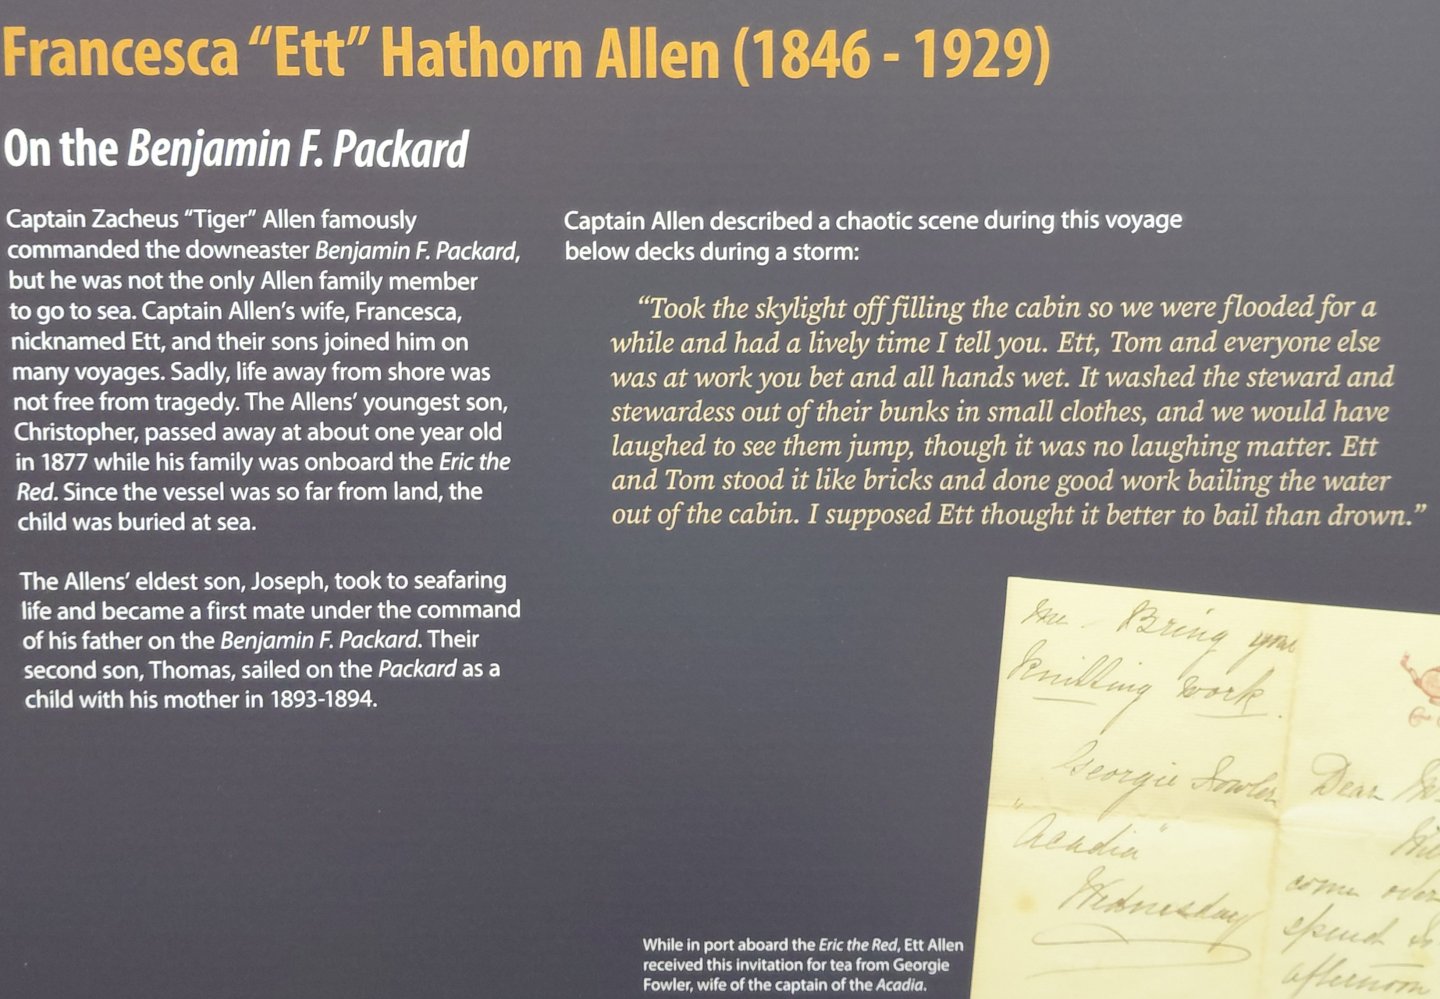 Francesca “Ett” Hathorn Allen (1846 - 1929)
On the Benjamin F. Packard
Captain Zacheus “Tiger” Allen famously
commanded the downeaster Benjamin F. Packard,
but he was not the only Allen family member
to go to sea. Captain Allen’s wife, Francesca,
nicknamed Ett, and their sons joined him on
many voyages. Sadly, life away from shore was
not free from tragedy. The Allens’ youngest son,
Christopher, passed away at about one year old
in 1877 while his family was onboard the Eric the
Red. Since the vessel was so far from land, the
child was buried at sea.
The Allens’ eldest son, Joseph, took to seafaring
life and became a first mate under the command
of his father on the Benjamin F. Packard. Their
second son, Thomas, sailed on the Packard as a
child with his mother in 1893-1894.
Captain Allen described a chaotic scene during this voyage
below decks during a storm:
“Took the skylight off filling the cabin so we were flooded for a
while and had a lively time I tell you. Ett, Tom and everyone else
was at work you bet and all hands wet. It washed the steward and
stewardess out of their bunks in small clothes, and we would have
laughed to see them jump, though it was no laughing matter. Ett
and Tom stood it like bricks and done good work bailing the water
out of the cabin. I supposed Ett thought it better to bail than drown.”
me - Bring your
Knitting work.
Georgie Fowler
"Acadia"
Wednesday
Dear
come over
spend
afternoon
While in port aboard the Eric the Red, Ett Allen
received this invitation for tea from Georgie
Fowler, wife of the captain of the Acadia.